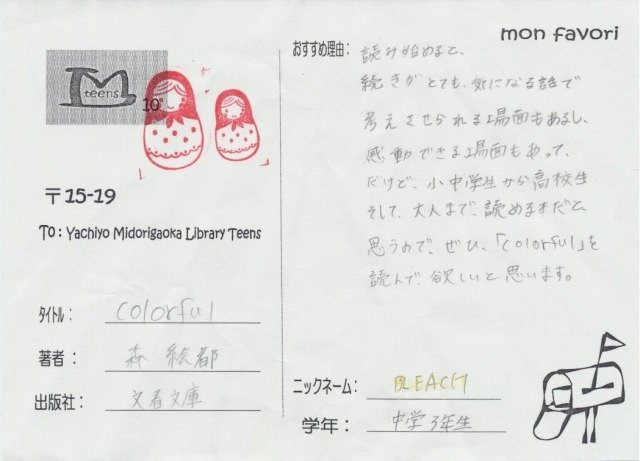 mon favori
M
teens
10
〒15-19
To : Yachiyo Midorigaoka Library Teens
タイトル： colorful
著者： 森 絵都
出版社： 文春文庫
おすすめ理由： 読み始めると、
続きがとても、気になる話で
考えさせられる場面もあるし、
感動できる場面もあって、
だけど、小中学生から高校生
そして、大人まで、読める本だと、
思うので、ぜひ、「colorful」を
読んで、欲しいと思います。
ニックネーム： BLEACH
学年： 中学3年生